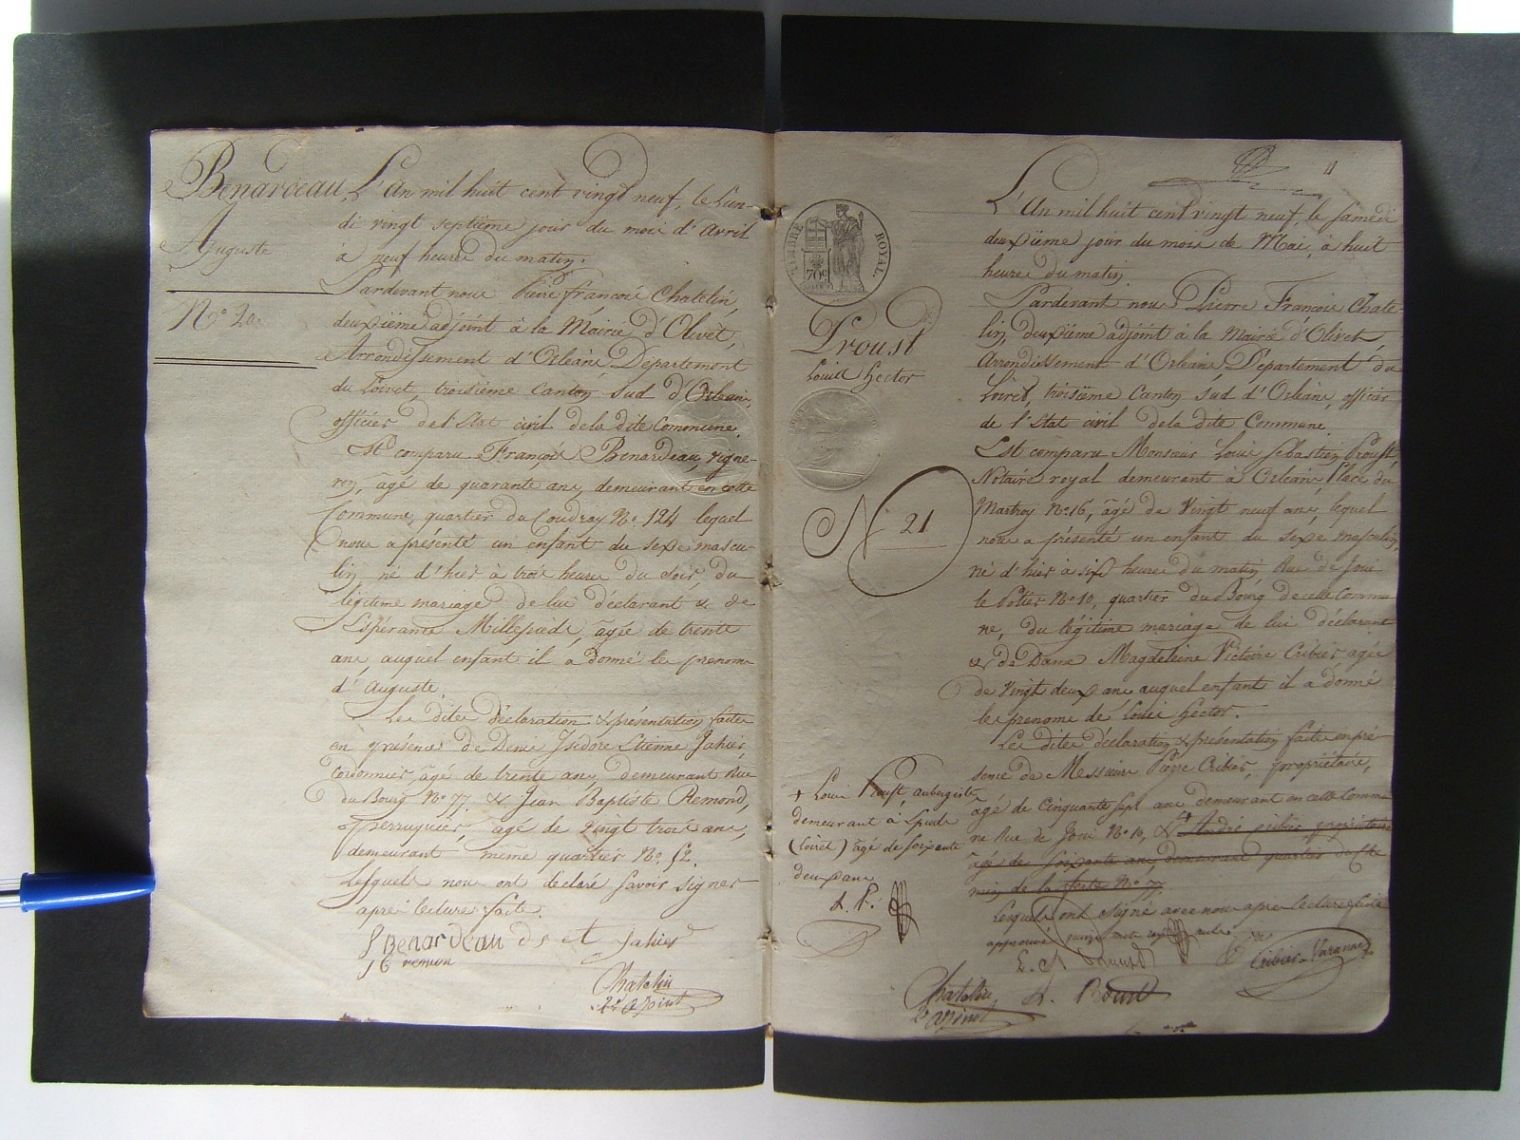 Benardeau
Auguste
N.° 20.
L'An mil huit cent vingt neuf, le Lun-
di vingt septième jour du mois d'Avril
à neuf heures du matin.
Pardevant nous Pierre François Chatelin,
deuxième adjoint à la Mairie d'Olivet,
Arrondissement d'Orléans Département
du Loiret, troisième Canton Sud d'Orléans,
officier de l'Etat civil de la dite Commune.
Est comparu François Benardeau, vigne-
ron, âgé de quarante ans, demeurant en cette
Commune, quartier du Coudray N.° 124 lequel
nous a présenté un enfant du sexe mascu-
lin né d'hier à trois heures du soir du
légitime mariage de lui déclarant & de
Espérance Millepieds, âgée de trente
ans, auquel enfant il a donné le prenom
d'Auguste.
Les dites déclaration & présentation faites
en présence de Denis Isidore Etienne Jahier,
Cordonnier âgé de trente ans, demeurant Rue
du Bourg N.° 77 & Jean Baptiste Remond,
perruquier, âgé de Vingt trois ans,
demeurant même quartier N.° 52.
Lesquels nous ont déclaré savoir signer
après lecture faite.
f Benardeau d i et Jahier
Chatelin
2e adjoint
11
TIMBRE ROYAL
70c
Proust
Louis Hector
N 21
L'An mil huit cent vingt neuf, le samedi
deuxième jour du mois de Mai, à huit
heures du matin
Pardevant nous Pierre François Chate-
lin, deuxième adjoint à la Mairie d'Olivet,
Arrondissement d'Orléans, Département du
Loiret, troisième Canton Sud d'Orléans, officier
de l'Etat civil de la dite Commune.
Est comparu Monsieur Louis Sébastien Proust,
Notaire royal demeurant à Orléans, Place du
Martroy N.° 16, âgé de Vingt neuf ans, lequel
nous a présenté un enfant du sexe masculin,
né d'hier à six heures du matin, Rue de Joui
le Pottier N.° 10, quartier du Bourg de cette Commu-
ne, du légitime mariage de lui déclarant
& de Dame Magdeleine Victoire Cribier agée
de Vingt deux ans auquel enfant il a donné
les prenoms de Louis Hector.
Les dites déclaration & présentation faites en pré-
sence de Messieurs Pierre Cribier, propriétaire,
âgé de Cinquante sept ans demeurant en cette Commu-
ne Rue de Joui N.° 10, & André
âgé de soixante ans, demeurant quartier du Che
min de la N.° 77
Lesquels ont signé avec nous après lecture faite
approuvé quinze mots rayés nuls
+ Louis Proust aubergiste
demeurant à
(Loiret) âgé de soixante
deux ans
L. P.
Cribier-Varanne
Chatelin
2e adjoint
L. Proust